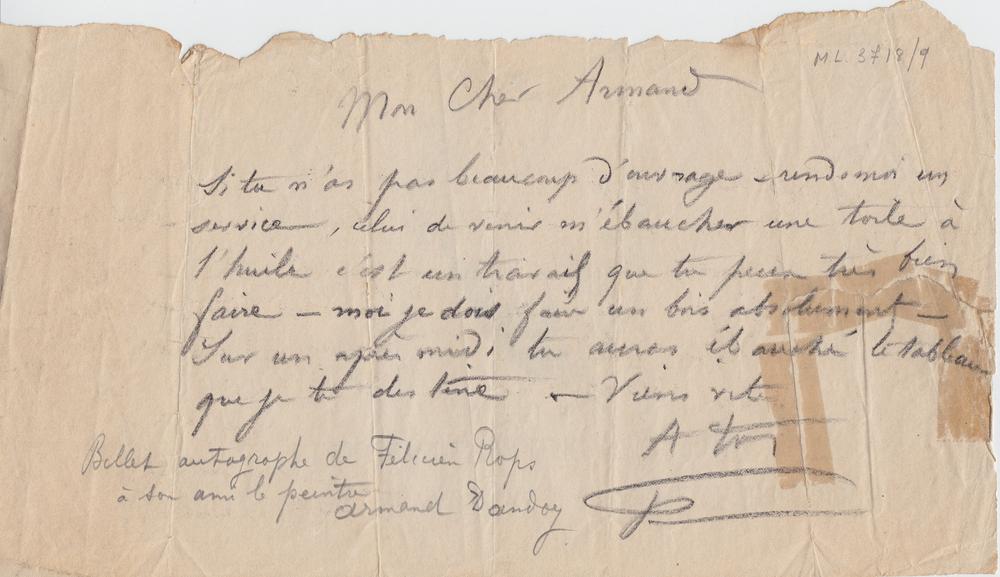 M L. 3718/9
Mon Cher Armand
Si tu n'as pas beaucoup d'ouvrage – rends moi un
service, celui de venir m'ébaucher une toile à
l'huile c'est un travail que tu peux très bien
faire – moi je dois faire un bois absolument –
Sur un après midi tu auras ébauché le tableau
que je te destine – Viens vite
A toi
Billet autographe de Félicien Rops
à son ami le peintre
Armand Dandoy